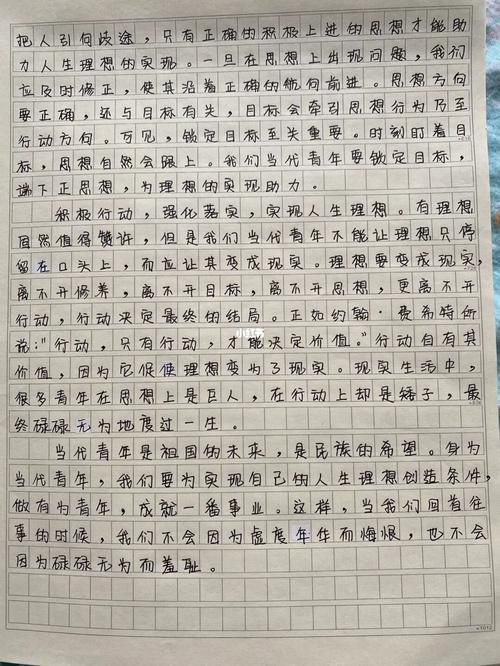 把人引向歧途，只有正确的积极上进的思想才能助
力人生理想的实现。一旦在思想上出现问题，我们
应及时修正，使其沿着正确的航向前进。思想方向
要正确，还与目标有关，目标会牵引思想行为乃至
行动方向。可见，锁定目标至关重要。时刻盯着目
标，思想自然会跟上。我们当代青年要锁定目标，
端下正思想，为理想的实现助力。
积极行动，强化落实，实现人生理想。有理想
固然值得赞许，但是我们当代青年不能让理想只停
留在口头上，而应让其变成现实。理想要变成现实，
离不开修养，离不开目标，离不开思想，更离不开
行动，行动决定最终的结局。正如约翰·费希特所
说："行动，只有行动，才能决定价值。"行动自有其
价值，因为它促使理想变为了现实。现实生活中，
很多青年在思想上是巨人，在行动上却是矮子，最
终碌碌无为地度过一生。
当代青年是祖国的未来，是民族的希望。身为
当代青年，我们要为实现自己的人生理想创造条件，
做有为青年，成就一番事业。这样，当我们回首往
事的时候，我们不会因为虚度年华而悔恨，也不会
因为碌碌无为而羞耻。
小红书